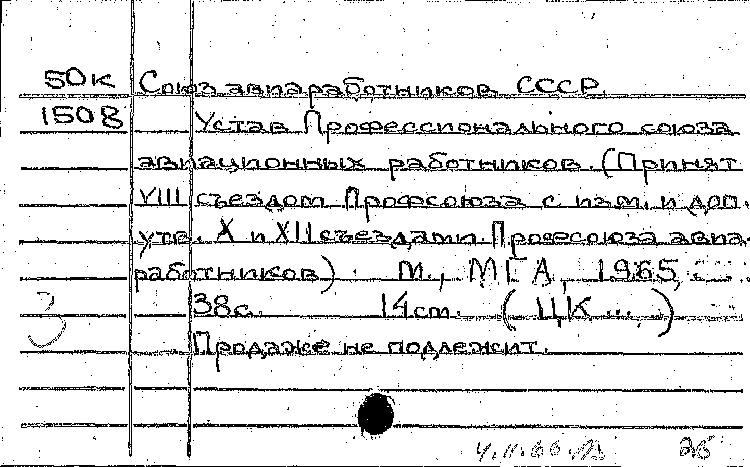 50к Союз авиаработников СССР.
1508 Устав Профессионального союза
авиационных работников. (Принят
VIII съездом Профсоюза с изм. и доп.
утв. X и XII съездами Профсоюза авиа-
работников). М., МГА, 1965,
38с. 14см. (ЦК ... )
3
Продаже не подлежит.
4.11.66